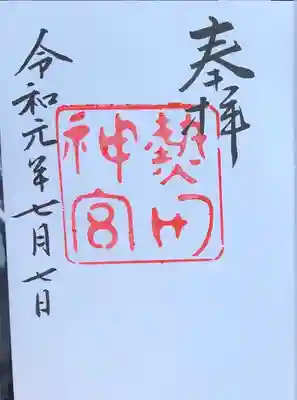 奉拝
熱田
神宮
令和元年七月七日